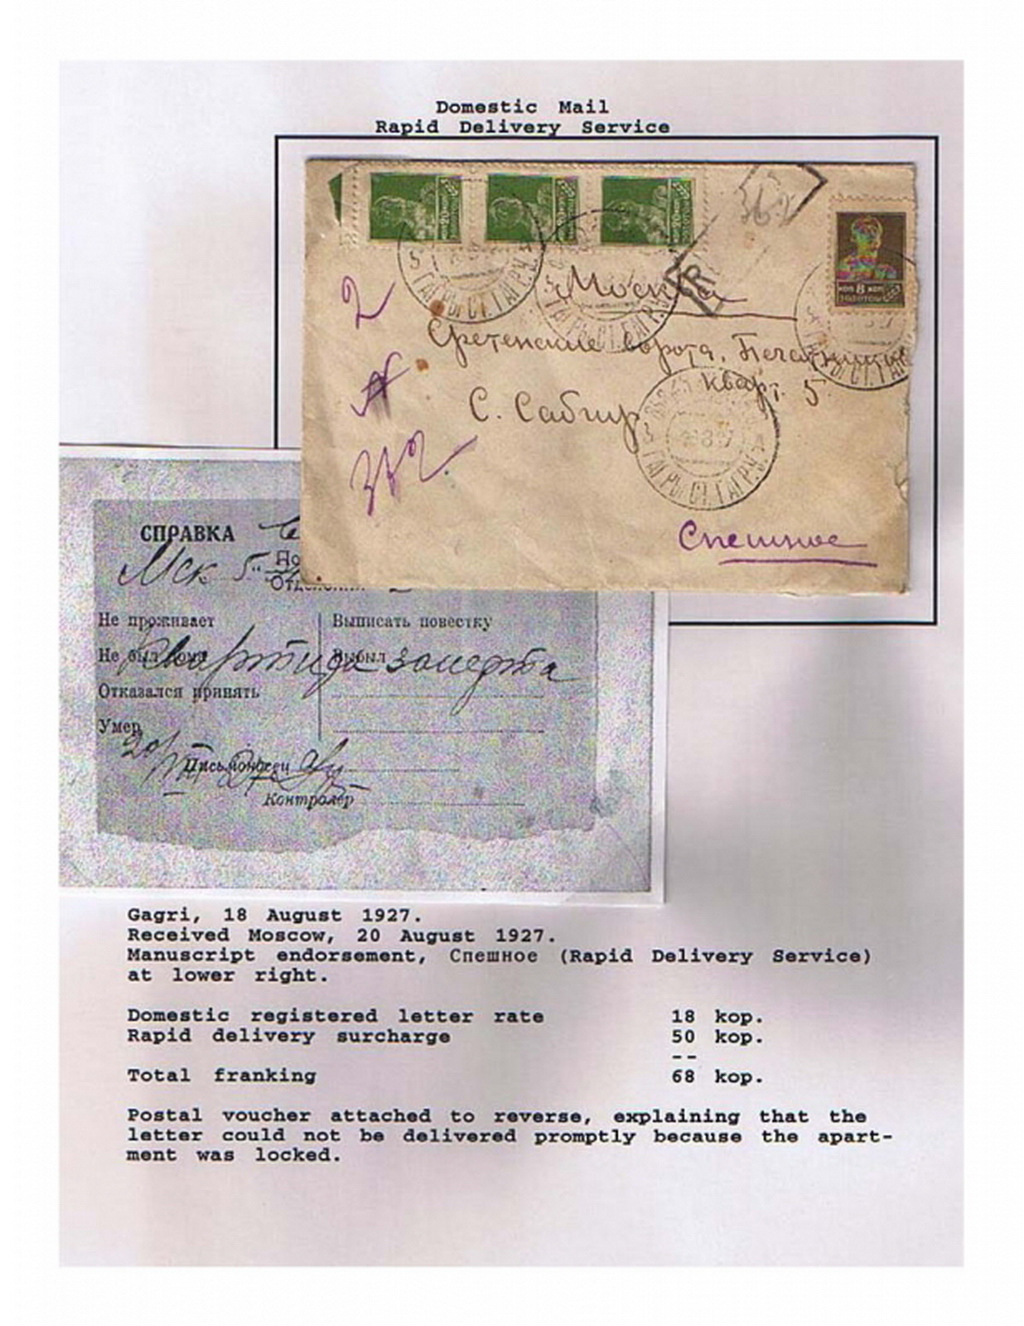 Domestic Mail
Rapid Delivery Service
20
20
20
R
362
коп 8 коп
ЗОЛОТОМ
Москва
Сретенские ворота, Печатников
кварт. 5.
С. Сабгир
2
372
ГАГРЫ СТ. ГАГР.У.
Спешное
СПРАВКА
Мск 5
Не проживает
Выписать повестку
Не был дома
Выбыл
Квартира заперта
Отказался принять
Умер
20/
Письмоносец
Контролер
Gagri, 18 August 1927.
Received Moscow, 20 August 1927.
Manuscript endorsement, Спешное (Rapid Delivery Service)
at lower right.
Domestic registered letter rate 18 kop.
Rapid delivery surcharge 50 kop.
--
Total franking 68 kop.
Postal voucher attached to reverse, explaining that the
letter could not be delivered promptly because the apart-
ment was locked.